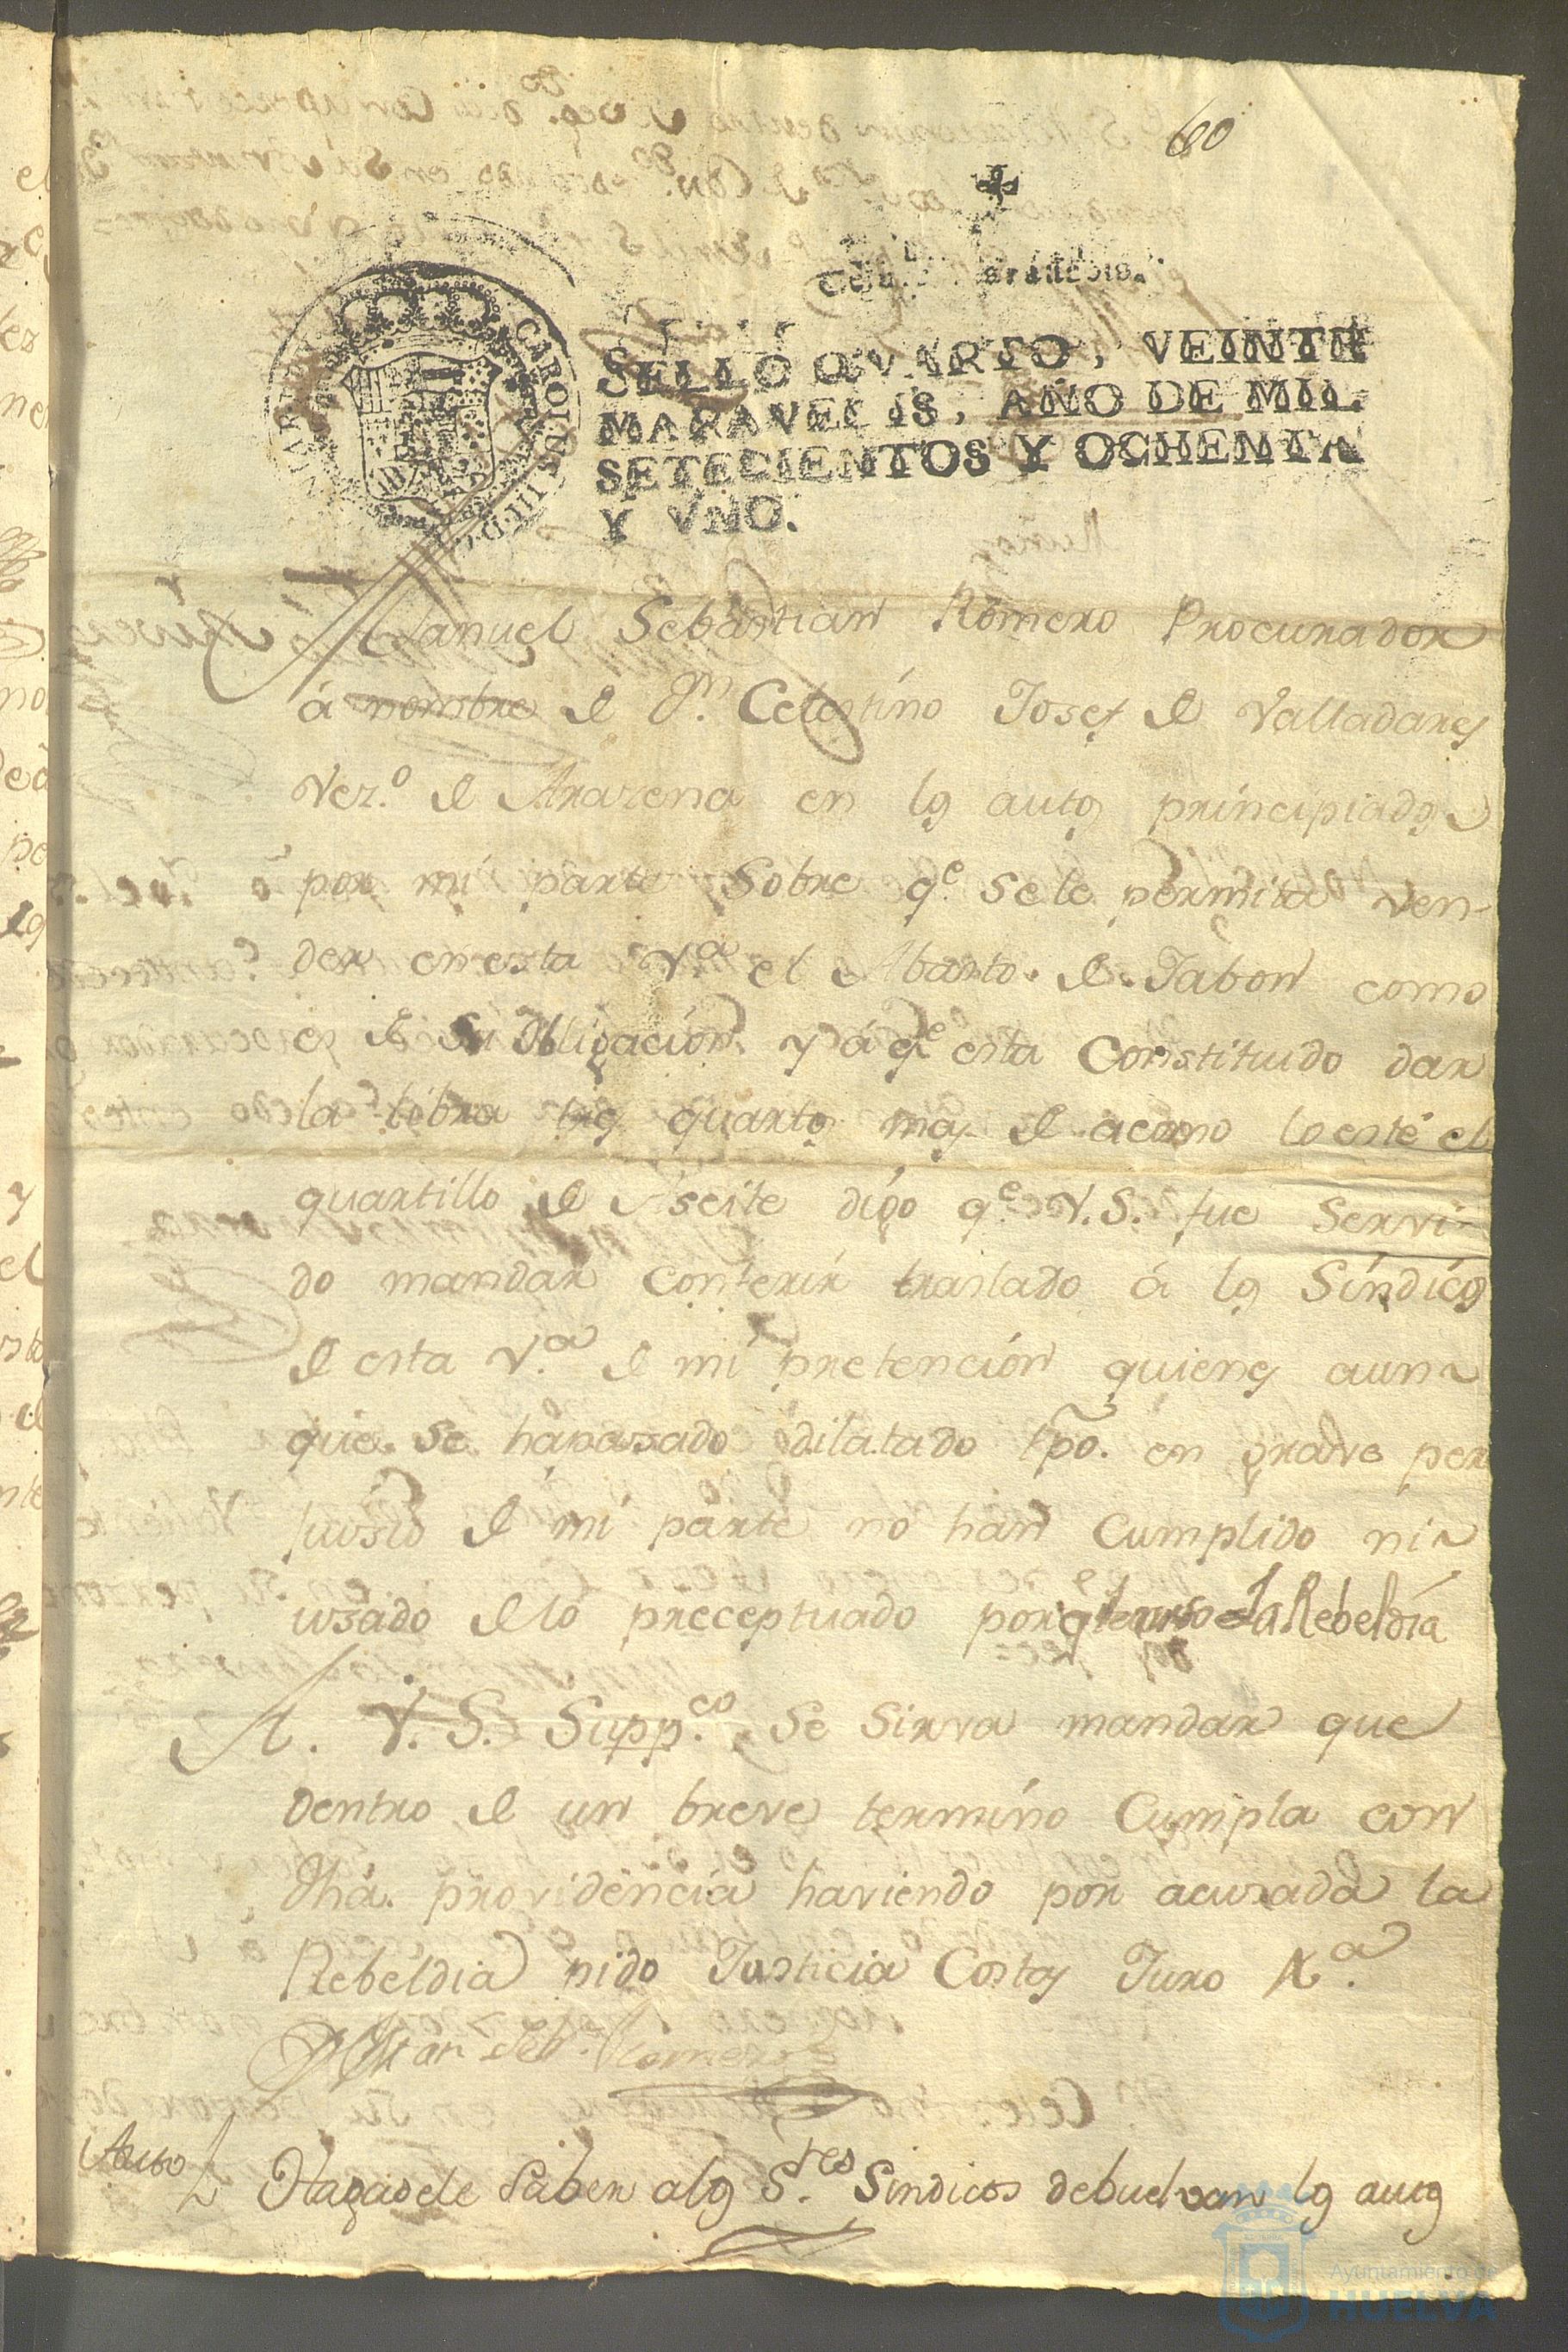 60
SELLO QVARTO, VEINTE
MARAVEDIS, AÑO DE MIL
SETECIENTOS Y OCHENTA
Y VNO.
CAROLUS III D
Manuel Sebastian Romero Procurador
á nombre de Dn. Celestino Josef de Valladares
Vez.o de Arazena en los autos principiados
por mi parte Sobre q.e se le permita ven-
der en esta V.a el Abasto de Jabon como
es de su obligacion y á q.e esta Constituido dar
la libra tres quartos mas de acomo lo esté el
quartillo de Aseite digo q.e V.S. fue servi-
do mandar conferir traslado á los Síndicos
de esta V.a de mi pretencion quienes aun-
que se ha pasado dilatado tpõ. en grave per
juisio de mi parte no han Cumplido ni-
usado de lo preceptuado por q les acuso la Rebeldía
A. V. S. Supp.co se sirva mandar que
dentro de un breve termino Cumpla con
dhá. providencia haviendo por acusada la
Rebeldia pido Justicia Costas Juro &.a
Man Seb.n Romero
Auto
Hagasele Saber a los S.res Sindicos debuelvan los autos
Ayuntamiento de
HUELVA